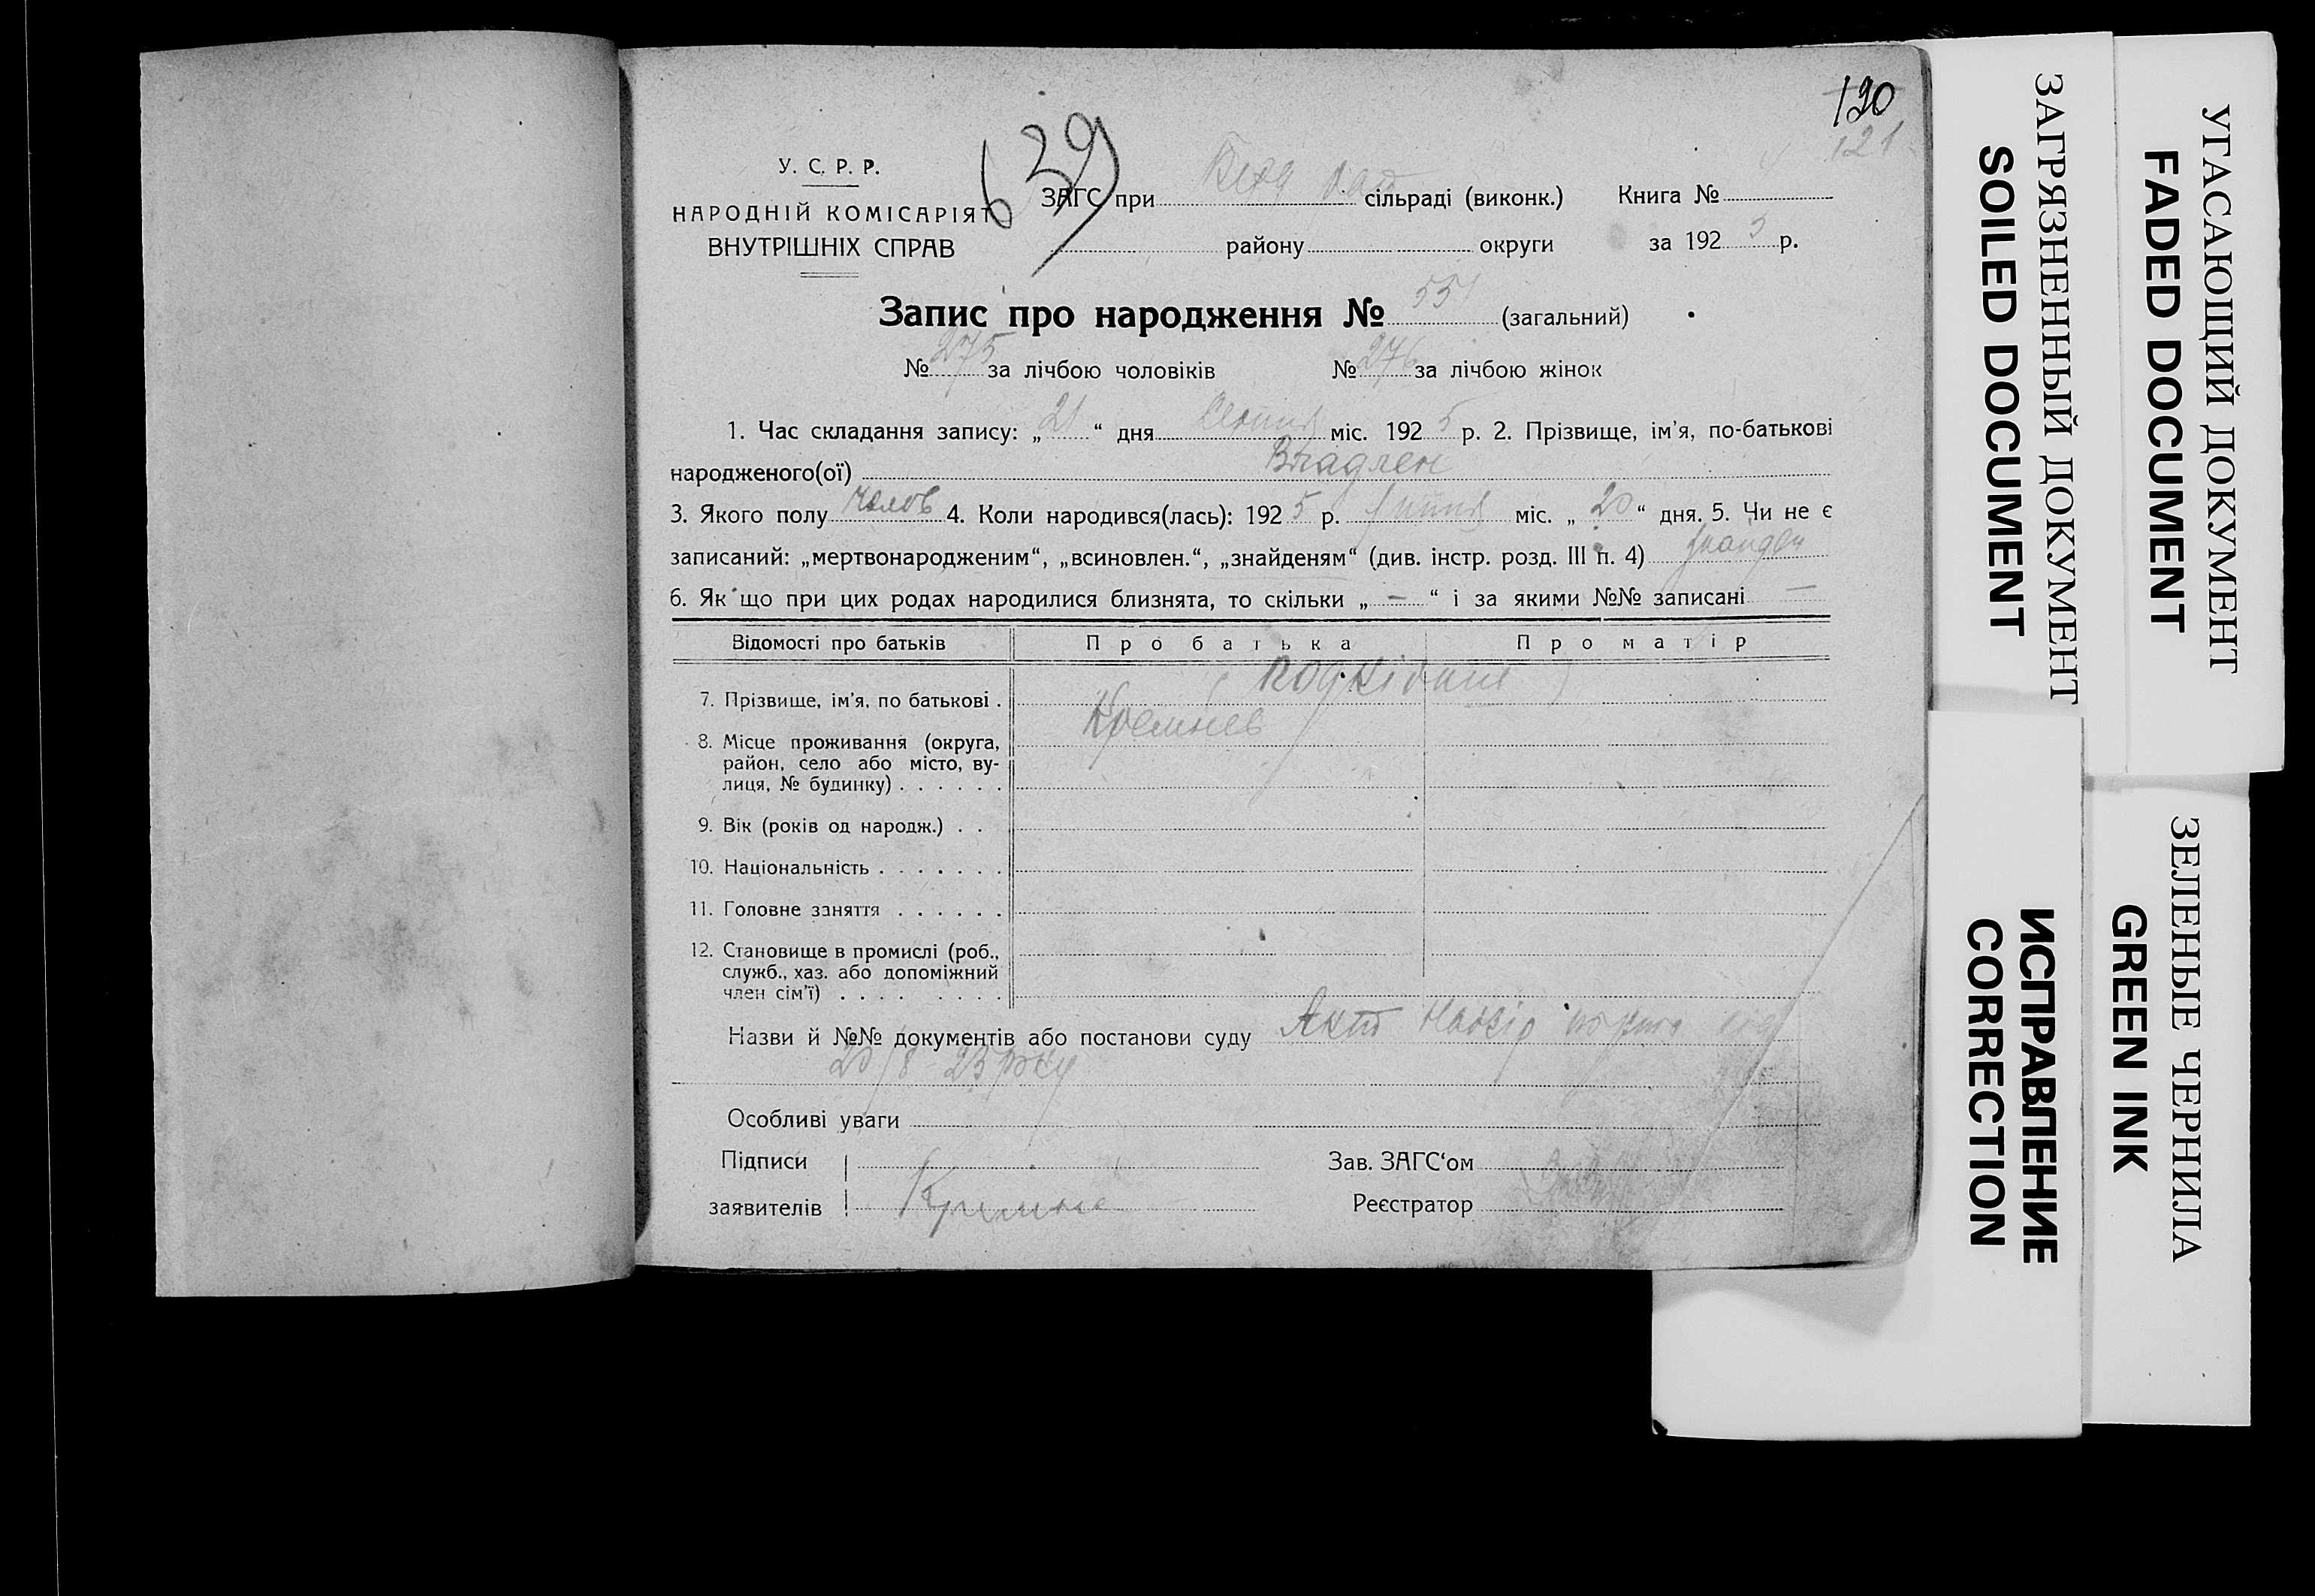 190
121
639
У. С. Р. Р.
НАРОДНІЙ КОМІСАРІЯТ
ВНУТРІШНІХ СПРАВ
ЗАГС при сільраді (виконк.)
району округи
Книга №
за 192 5 р.
Запис про народження № 551 (загальний)
№ 275 за лічбою чоловіків № 276 за лічбою жінок
1. Час складання запису: „ 21 “ дня міс. 192 5 р. 2. Прізвище, ім'я, по-батькові
народженого(ої) Владлен
3. Якого полу чолов 4. Коли народився(лась): 192 5 р. міс. „ 20 “ дня. 5. Чи не є
записаний: „мертвонародженим“, „всиновлен.“, „знайденям“ (див. інстр. розд. III п. 4)
6. Як що при цих родах народилися близнята, то скільки „ — “ і за якими №№ записані —
Відомості про батьків Про батька Про матір
7. Прізвище, ім'я, по батькові .
Кремнев
8. Місце проживання (округа,
район, село або місто, ву-
лиця, № будинку) . . . . . .
9. Вік (років од народж.) . .
10. Національність . . . . . . .
11. Головне заняття . . . . . .
12. Становище в промислі (роб.,
служб., хаз. або допоміжний
член сім'ї) . . . . . . . .
Назви й №№ документів або постанови суду Акт
20/8 25 року
Особливі уваги
Підписи
заявителів
Зав. ЗАГС‘ом
Реєстратор
ЗАГРЯЗНЕННЫЙ ДОКУМЕНТ
SOILED DOCUMENT
УГАСАЮЩИЙ ДОКУМЕНТ
FADED DOCUMENT
ИСПРАВЛЕНИЕ
CORRECTION
ЗЕЛЕНЫЕ ЧЕРНИЛА
GREEN INK